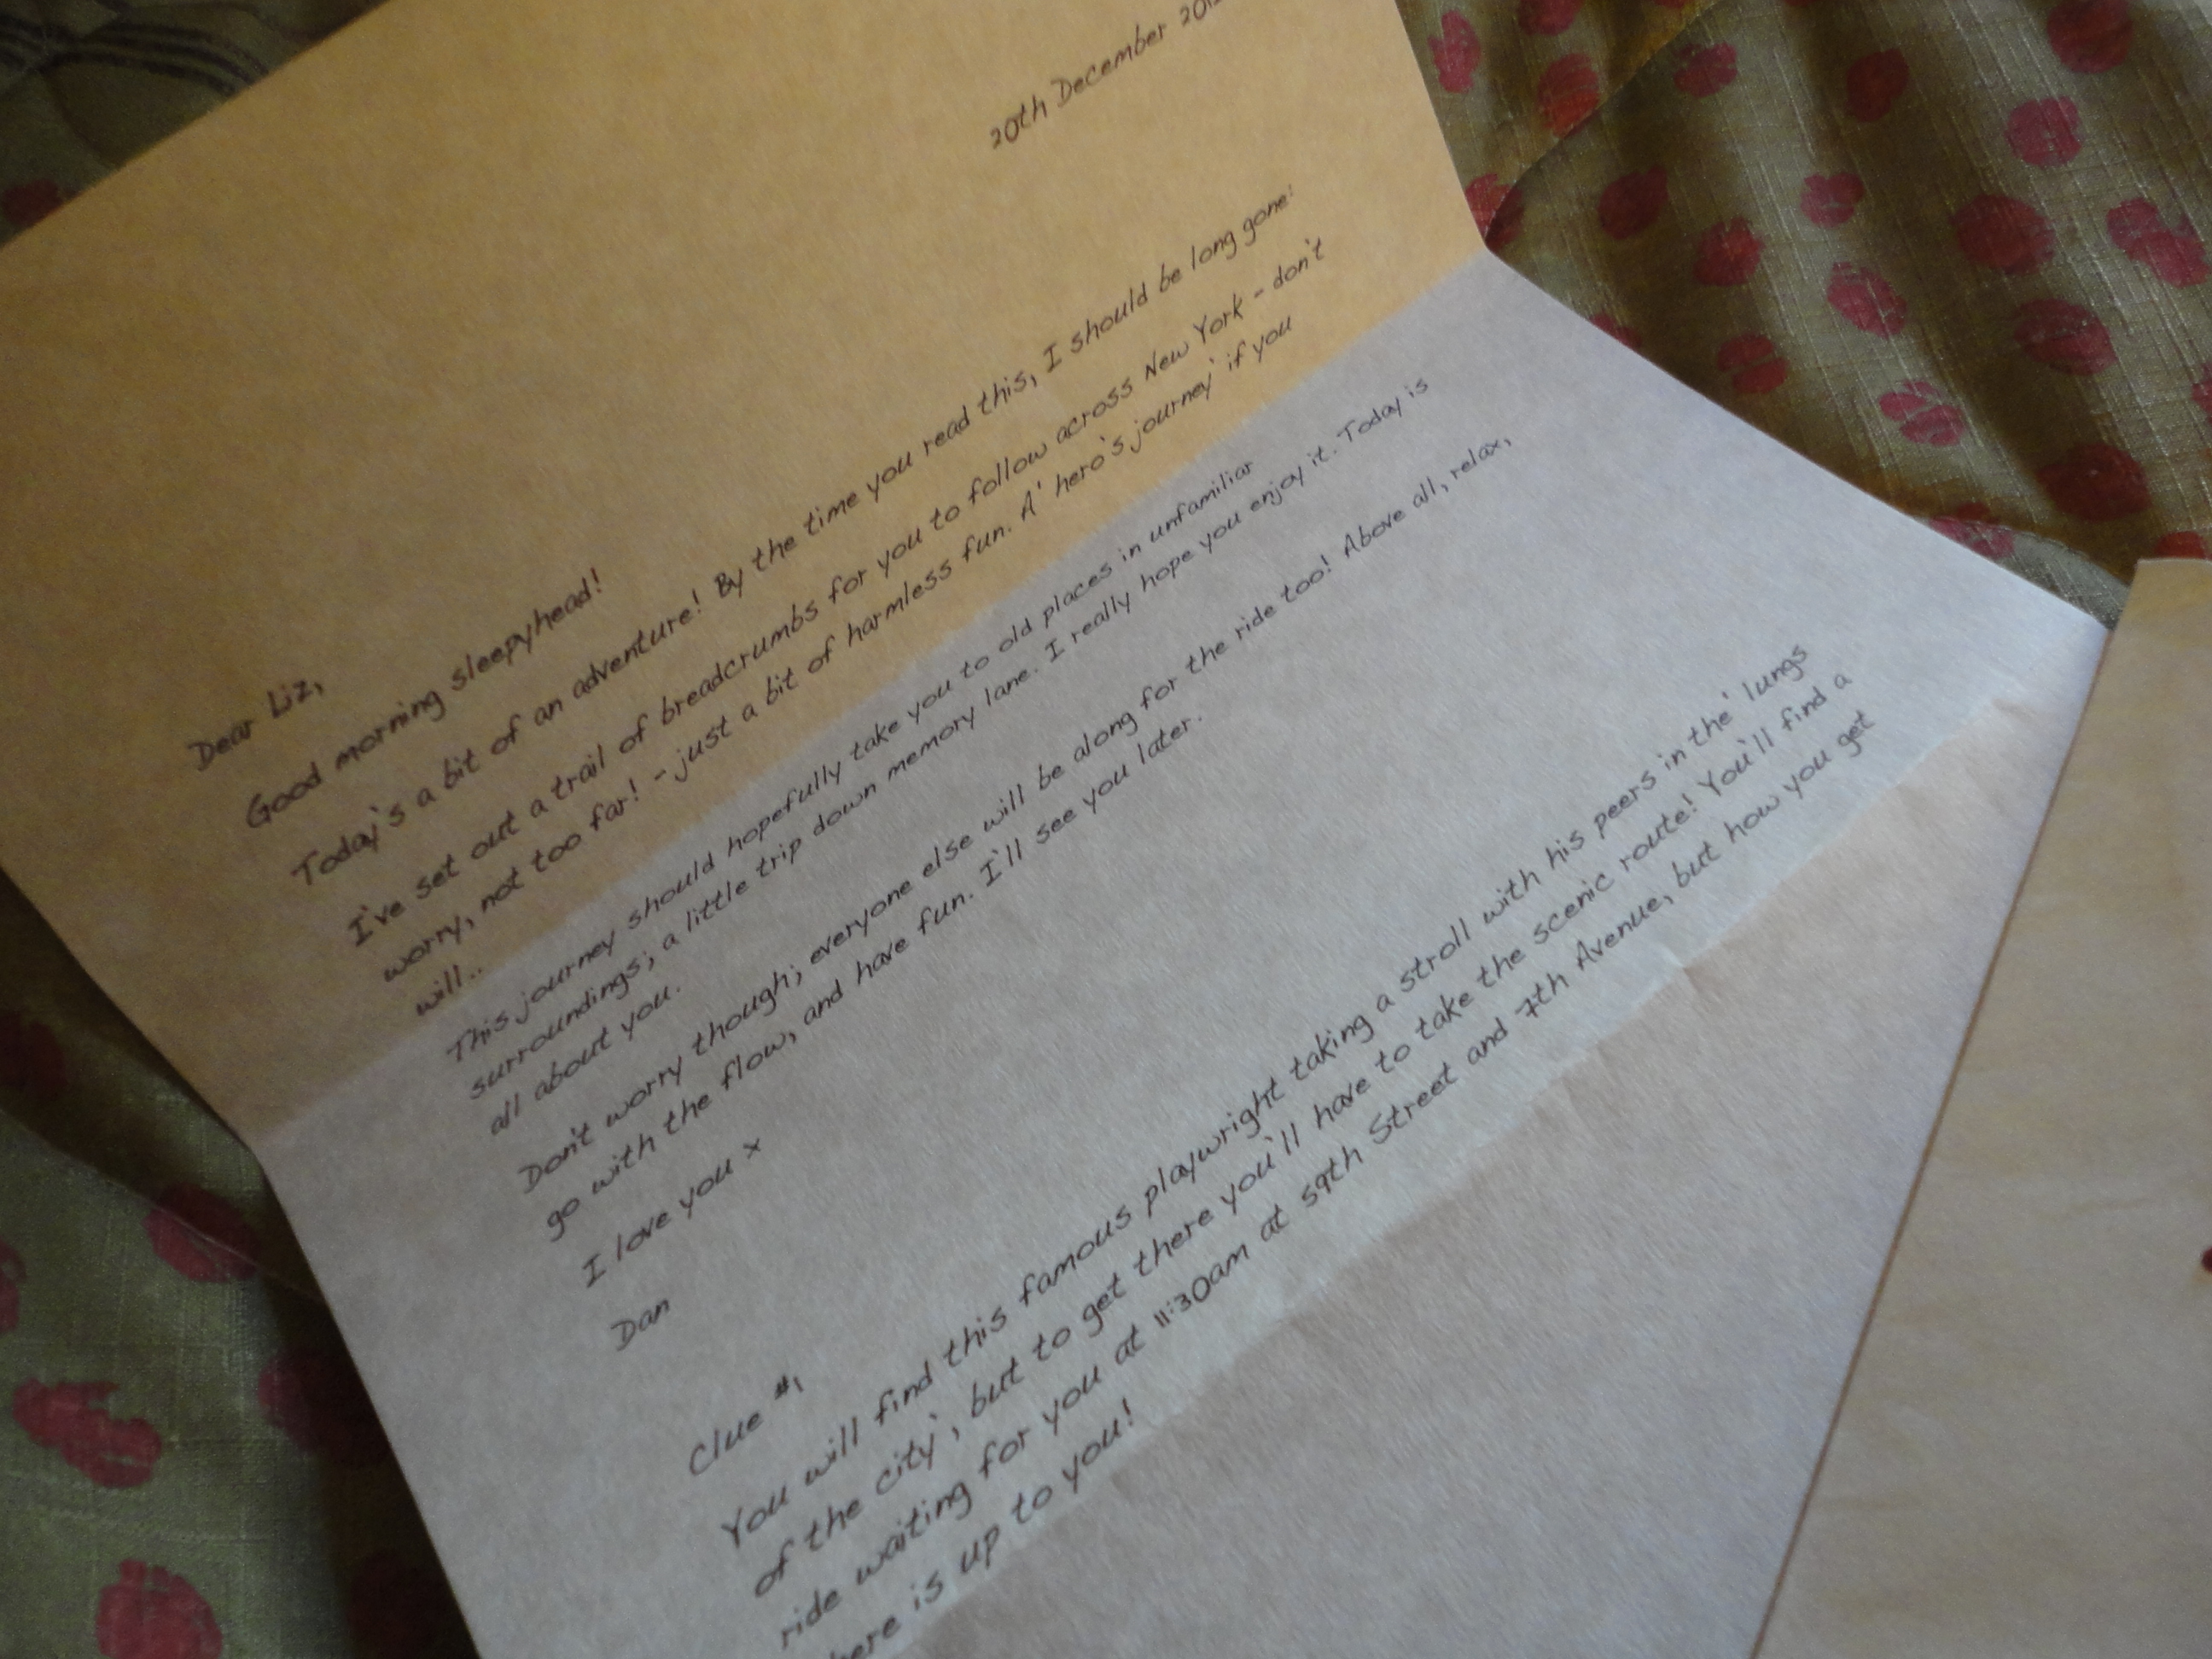 20th December
Dear Liz,
Good morning sleepyhead!
Today's a bit of an adventure! By the time you read this, I should be long gone:
I've set out a trail of breadcrumbs for you to follow across New York - don't
worry, not too far! - just a bit of harmless fun. A 'hero's journey' if you
will..
This journey should hopefully take you to old places in unfamiliar
surroundings; a little trip down memory lane. I really hope you enjoy it. Today is
all about you.
Don't worry though; everyone else will be along for the ride too! Above all, relax,
go with the flow, and have fun. I'll see you later.
I love you x
Dan
Clue #1
You will find this famous playwright taking a stroll with his peers in the 'lungs
of the city', but to get there you'll have to take the scenic route! You'll find a
ride waiting for you at 11:30am at 59th Street and 7th Avenue, but how you get
here is up to you!